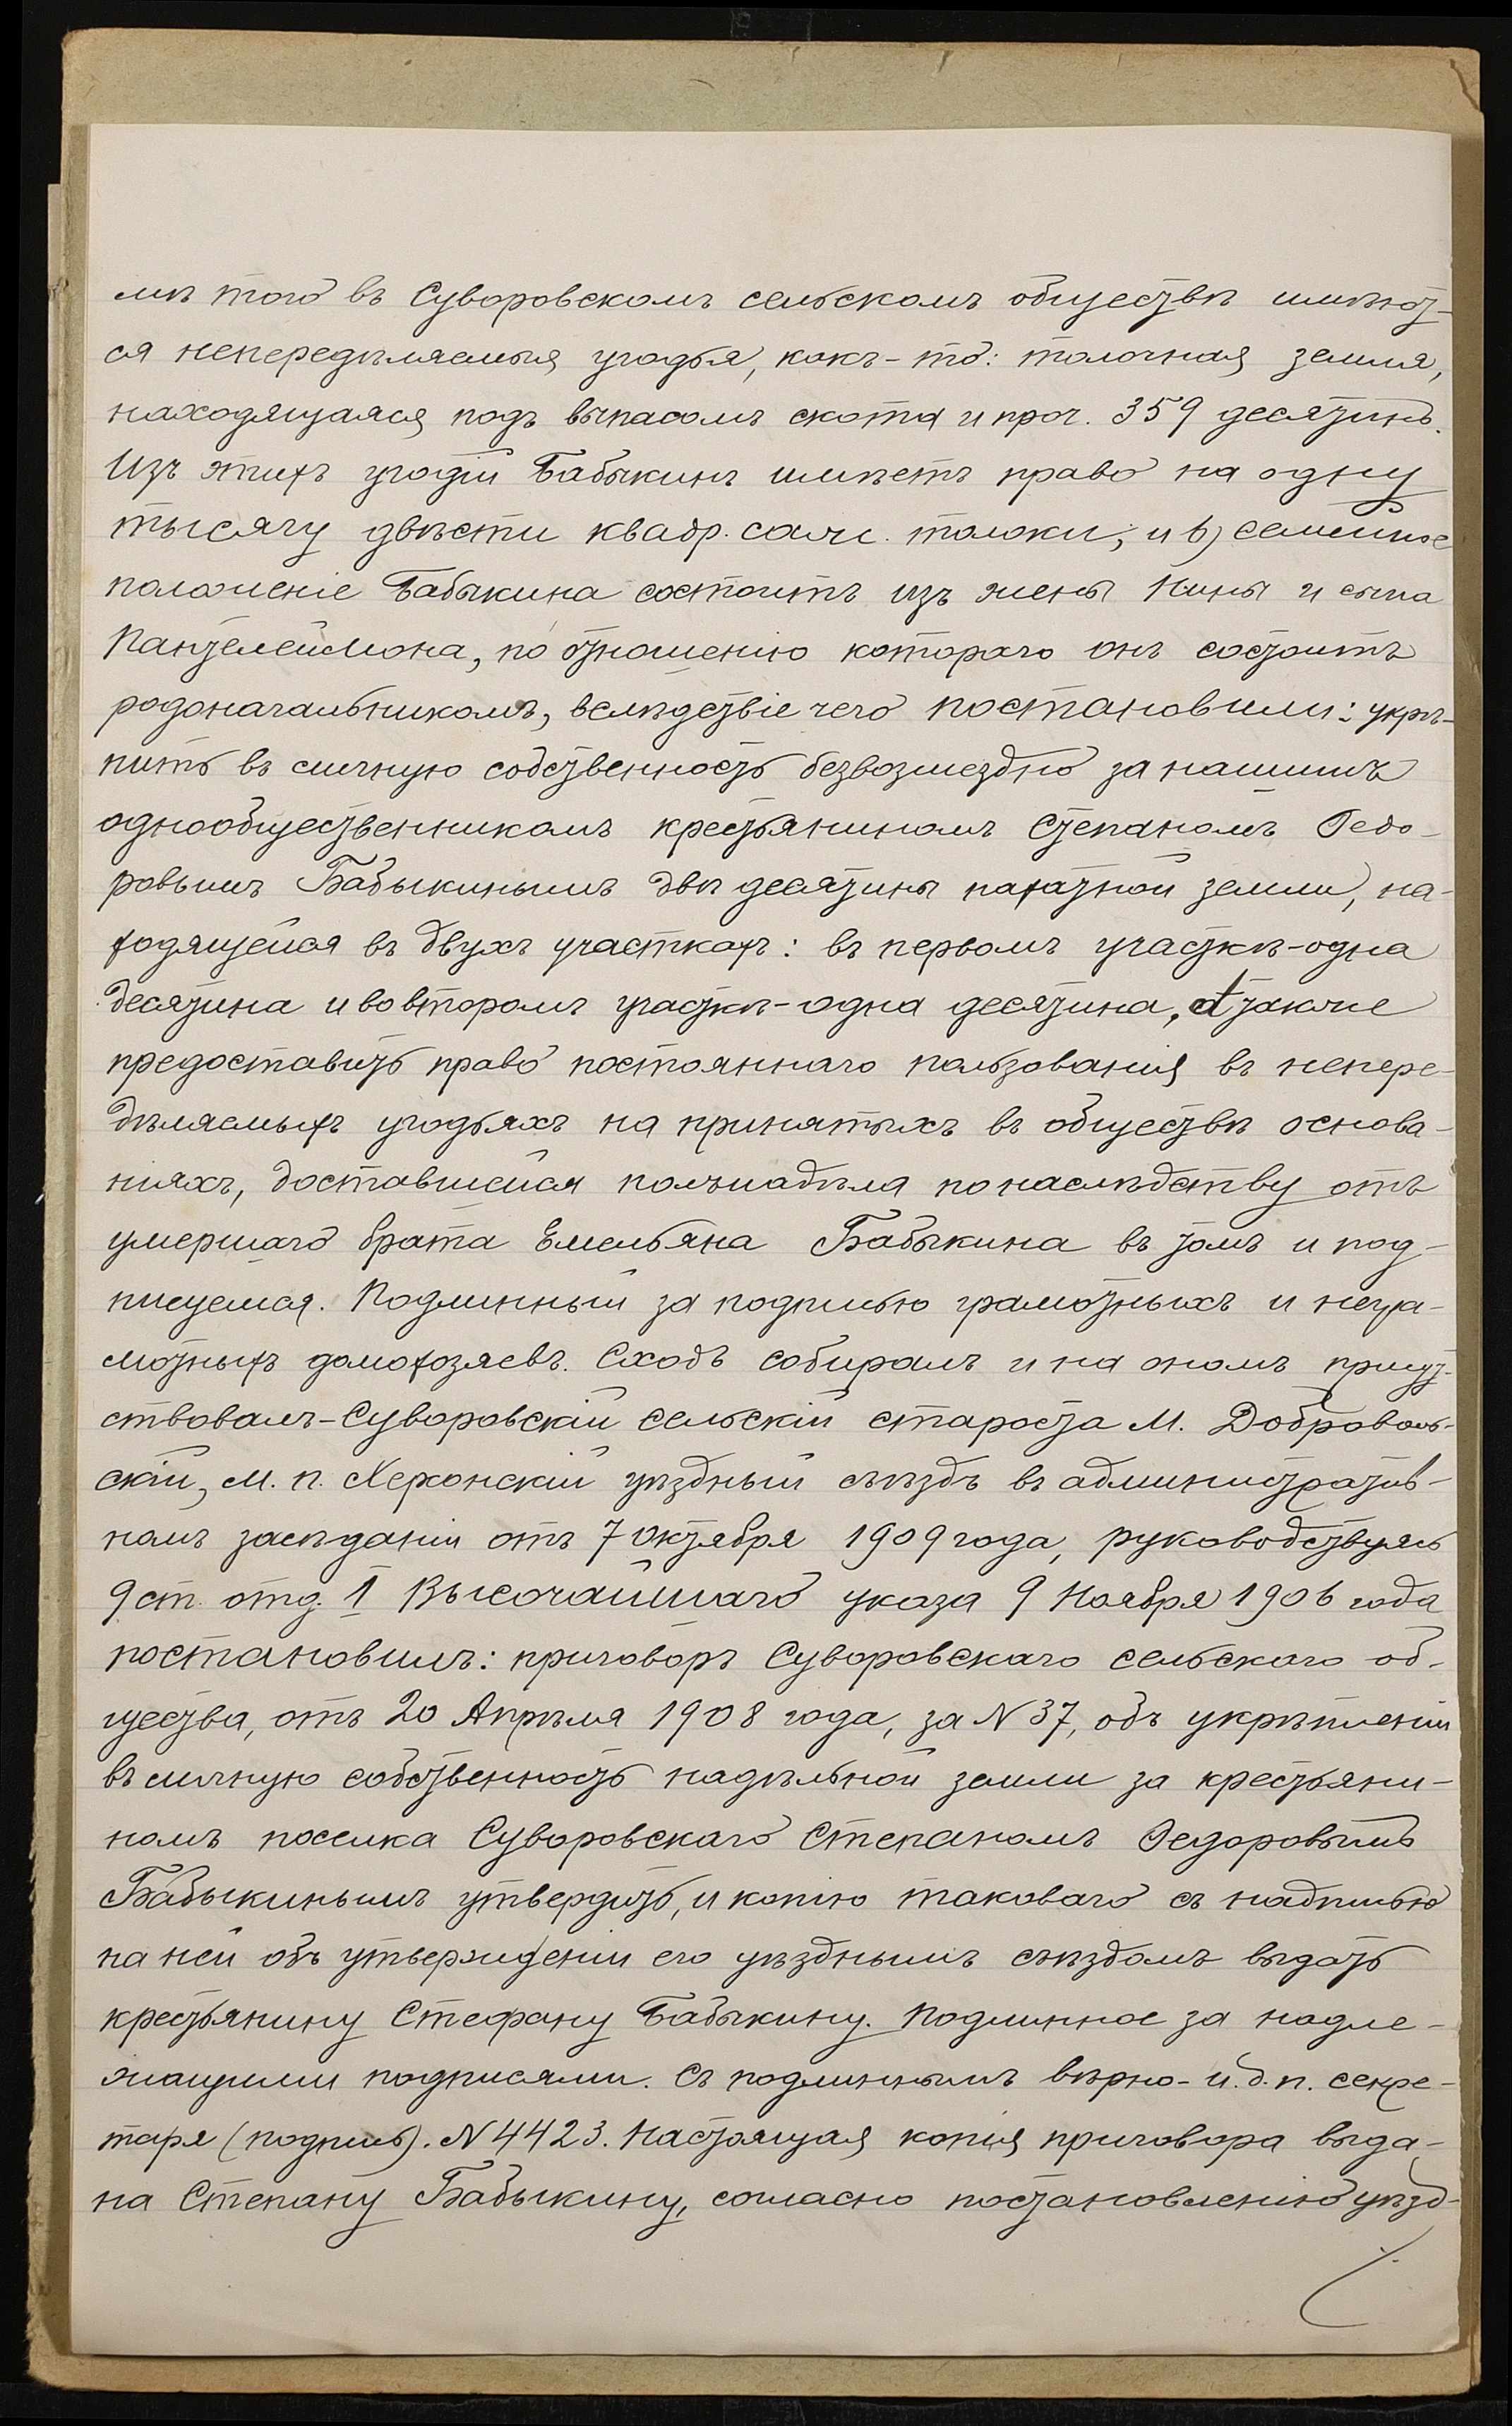 мѣ того въ Суворовскомъ сельскомъ обществѣ имѣют-
ся непередѣляемыя угодья, какъ-то: толочная земля,
находящаяся подъ выпасомъ скота и проч. 359 десятинъ.
Изъ этихъ угодій Бабыкинъ имѣетъ право на одну
тысячу двѣсти квадр. саж. толоки; и в) семейное
положеніе Бабыкина состоитъ изъ жены Нины и сына
Пантелеймона, по отношенію котораго онъ состоитъ
родоначальникомъ, вслѣдствіе чего постановили: укрѣ-
пить въ личную собственность безвозмездно за нашимъ
однообщественникомъ крестьяниномъ Степаномъ Ѳедо-
ровымъ Бабыкинымъ двѣ десятины пахатной земли, на-
ходящейся въ двухъ участкахъ: въ первомъ участкѣ-одна
десятина и во второмъ участкѣ-одна десятина, а также
предоставить право постояннаго пользованія въ непере-
дѣляемыхъ угодьяхъ на принятыхъ въ обществѣ основа-
ніяхъ, доставшейся полънадѣла по наслѣдству отъ
умершаго брата Емельяна Бабыкина въ томъ и под-
писуемся. Подлинный за подписью грамотныхъ и негра-
мотныхъ домохозяевъ. Сходъ собиралъ и на ономъ присут-
ствовалъ-Суворовскій сельскій староста М. Доброволь-
скій, М. П. Херсонскій уѣздный съѣздъ въ административ-
номъ засѣданіи отъ 7 Октября 1909 года, руководствуясь
9 ст. отд. I Высочайшаго указа 9 Ноября 1906 года
постановилъ: приговоръ Суворовскаго сельскаго об-
щества, отъ 20 Апрѣля 1908 года, за N 37, объ укрѣпленіи
въ личную собственность надѣльной земли за крестьяни-
номъ поселка Суворовскаго Степаномъ Ѳедоровымъ
Бабыкинымъ утвердить, и копію таковаго съ надписью
на ней объ утвержденіи его уѣзднымъ съѣздомъ выдать
крестьянину Стефану Бабыкину. Подлинное за надле-
жащими подписями. Съ подлиннымъ вѣрно- и.д.п. секре-
таря (подпись). N 4423. Настоящая копія приговора выда-
на Степану Бабыкину, согласно постановленію уѣзд-